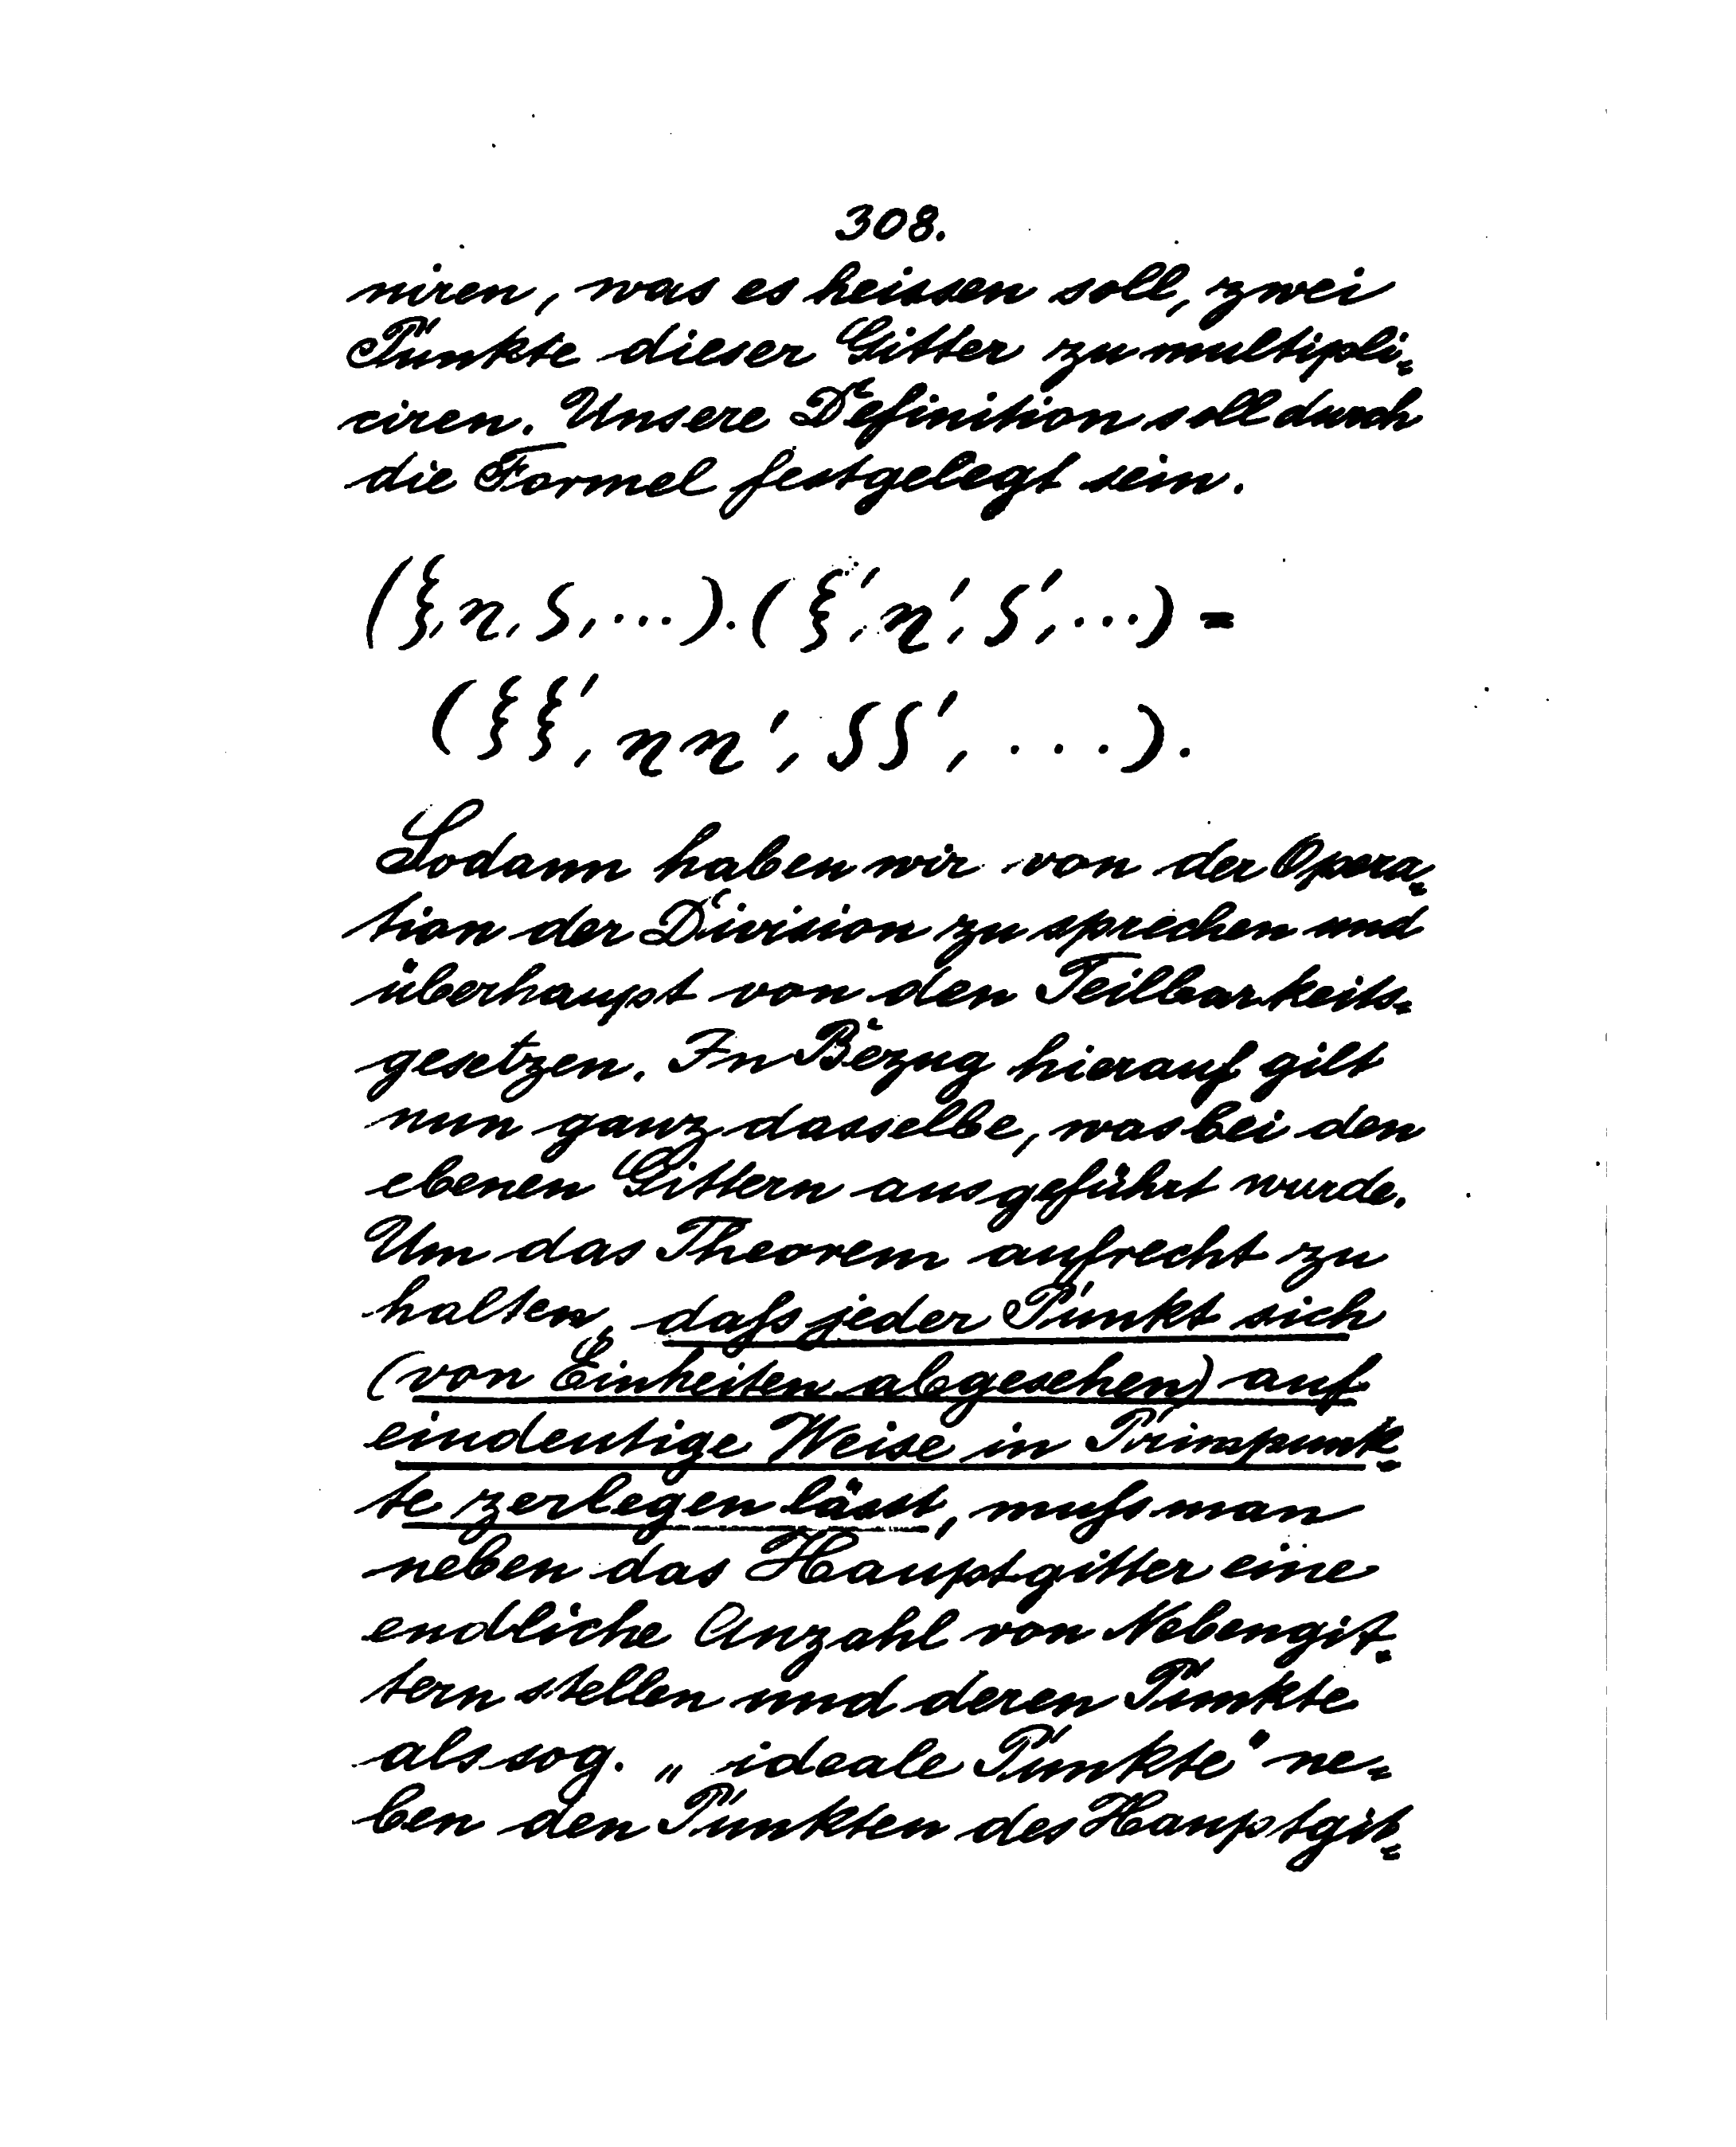 308.
niren, was es heissen soll, zwei
Punkte dieser Gitter zu multipli=
ciren. Unsere Definition soll durch
die Formel festgelegt sein.
(ξ, η, ζ, ...).(ξ', η', ζ', ...) =
(ξξ', ηη', ζζ', ...).
Sodann haben wir von der Opera=
tion der Division zu sprechen und
überhaupt von den Teilbarkeits=
gesetzen. In Bezug hierauf gilt
nun ganz dasselbe, was bei den
ebenen Gittern ausgeführt wurde.
Um das Theorem aufrecht zu
halten, daſs jeder Punkt sich
(von Einheiten abgesehen) auf
eindeutige Weise in Primpunk=
te zerlegen lässt, muſs man
neben das Hauptgitter eine
endliche Anzahl von Nebengit=
tern stellen und deren Punkte
als sog. „ideale Punkte" ne=
ben den Punkten des Hauptgit=